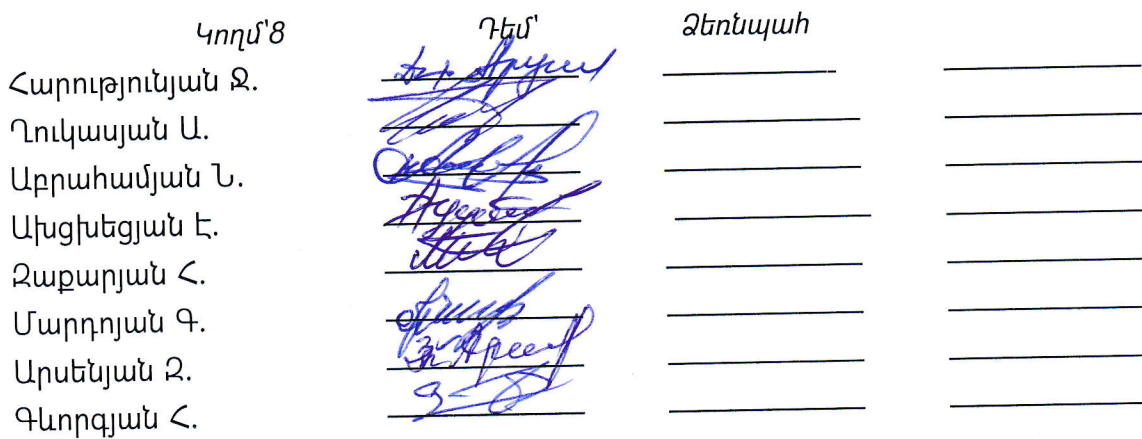 Կողմ՝8 Դեմ՝ Ձեռնպահ
Հարությունյան Ջ.
Ղուկասյան Ա.
Աբրահամյան Ն.
Ախցխեցյան Է.
Զաքարյան Հ.
Մարդոյան Գ.
Արսենյան Զ.
Գևորգյան Հ.